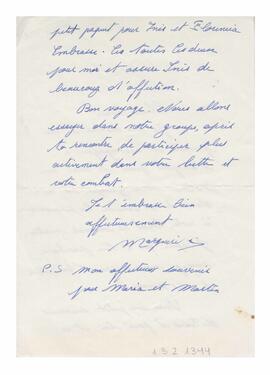 petit paquet pour Inès et Florencia
Embrasse-les toutes les deux
pour moi et assure Inès de
beaucoup d'affection.
Bon voyage. Nous allons
essayer dans notre groupe, après
ta rencontre de participer plus
activement dans votre lutte et
votre combat.
Je t'embrasse bien
affectueusement
Marguerite
P.S mon affectueux souvenir
pour Maria et
1 3 2 1 3 4 4